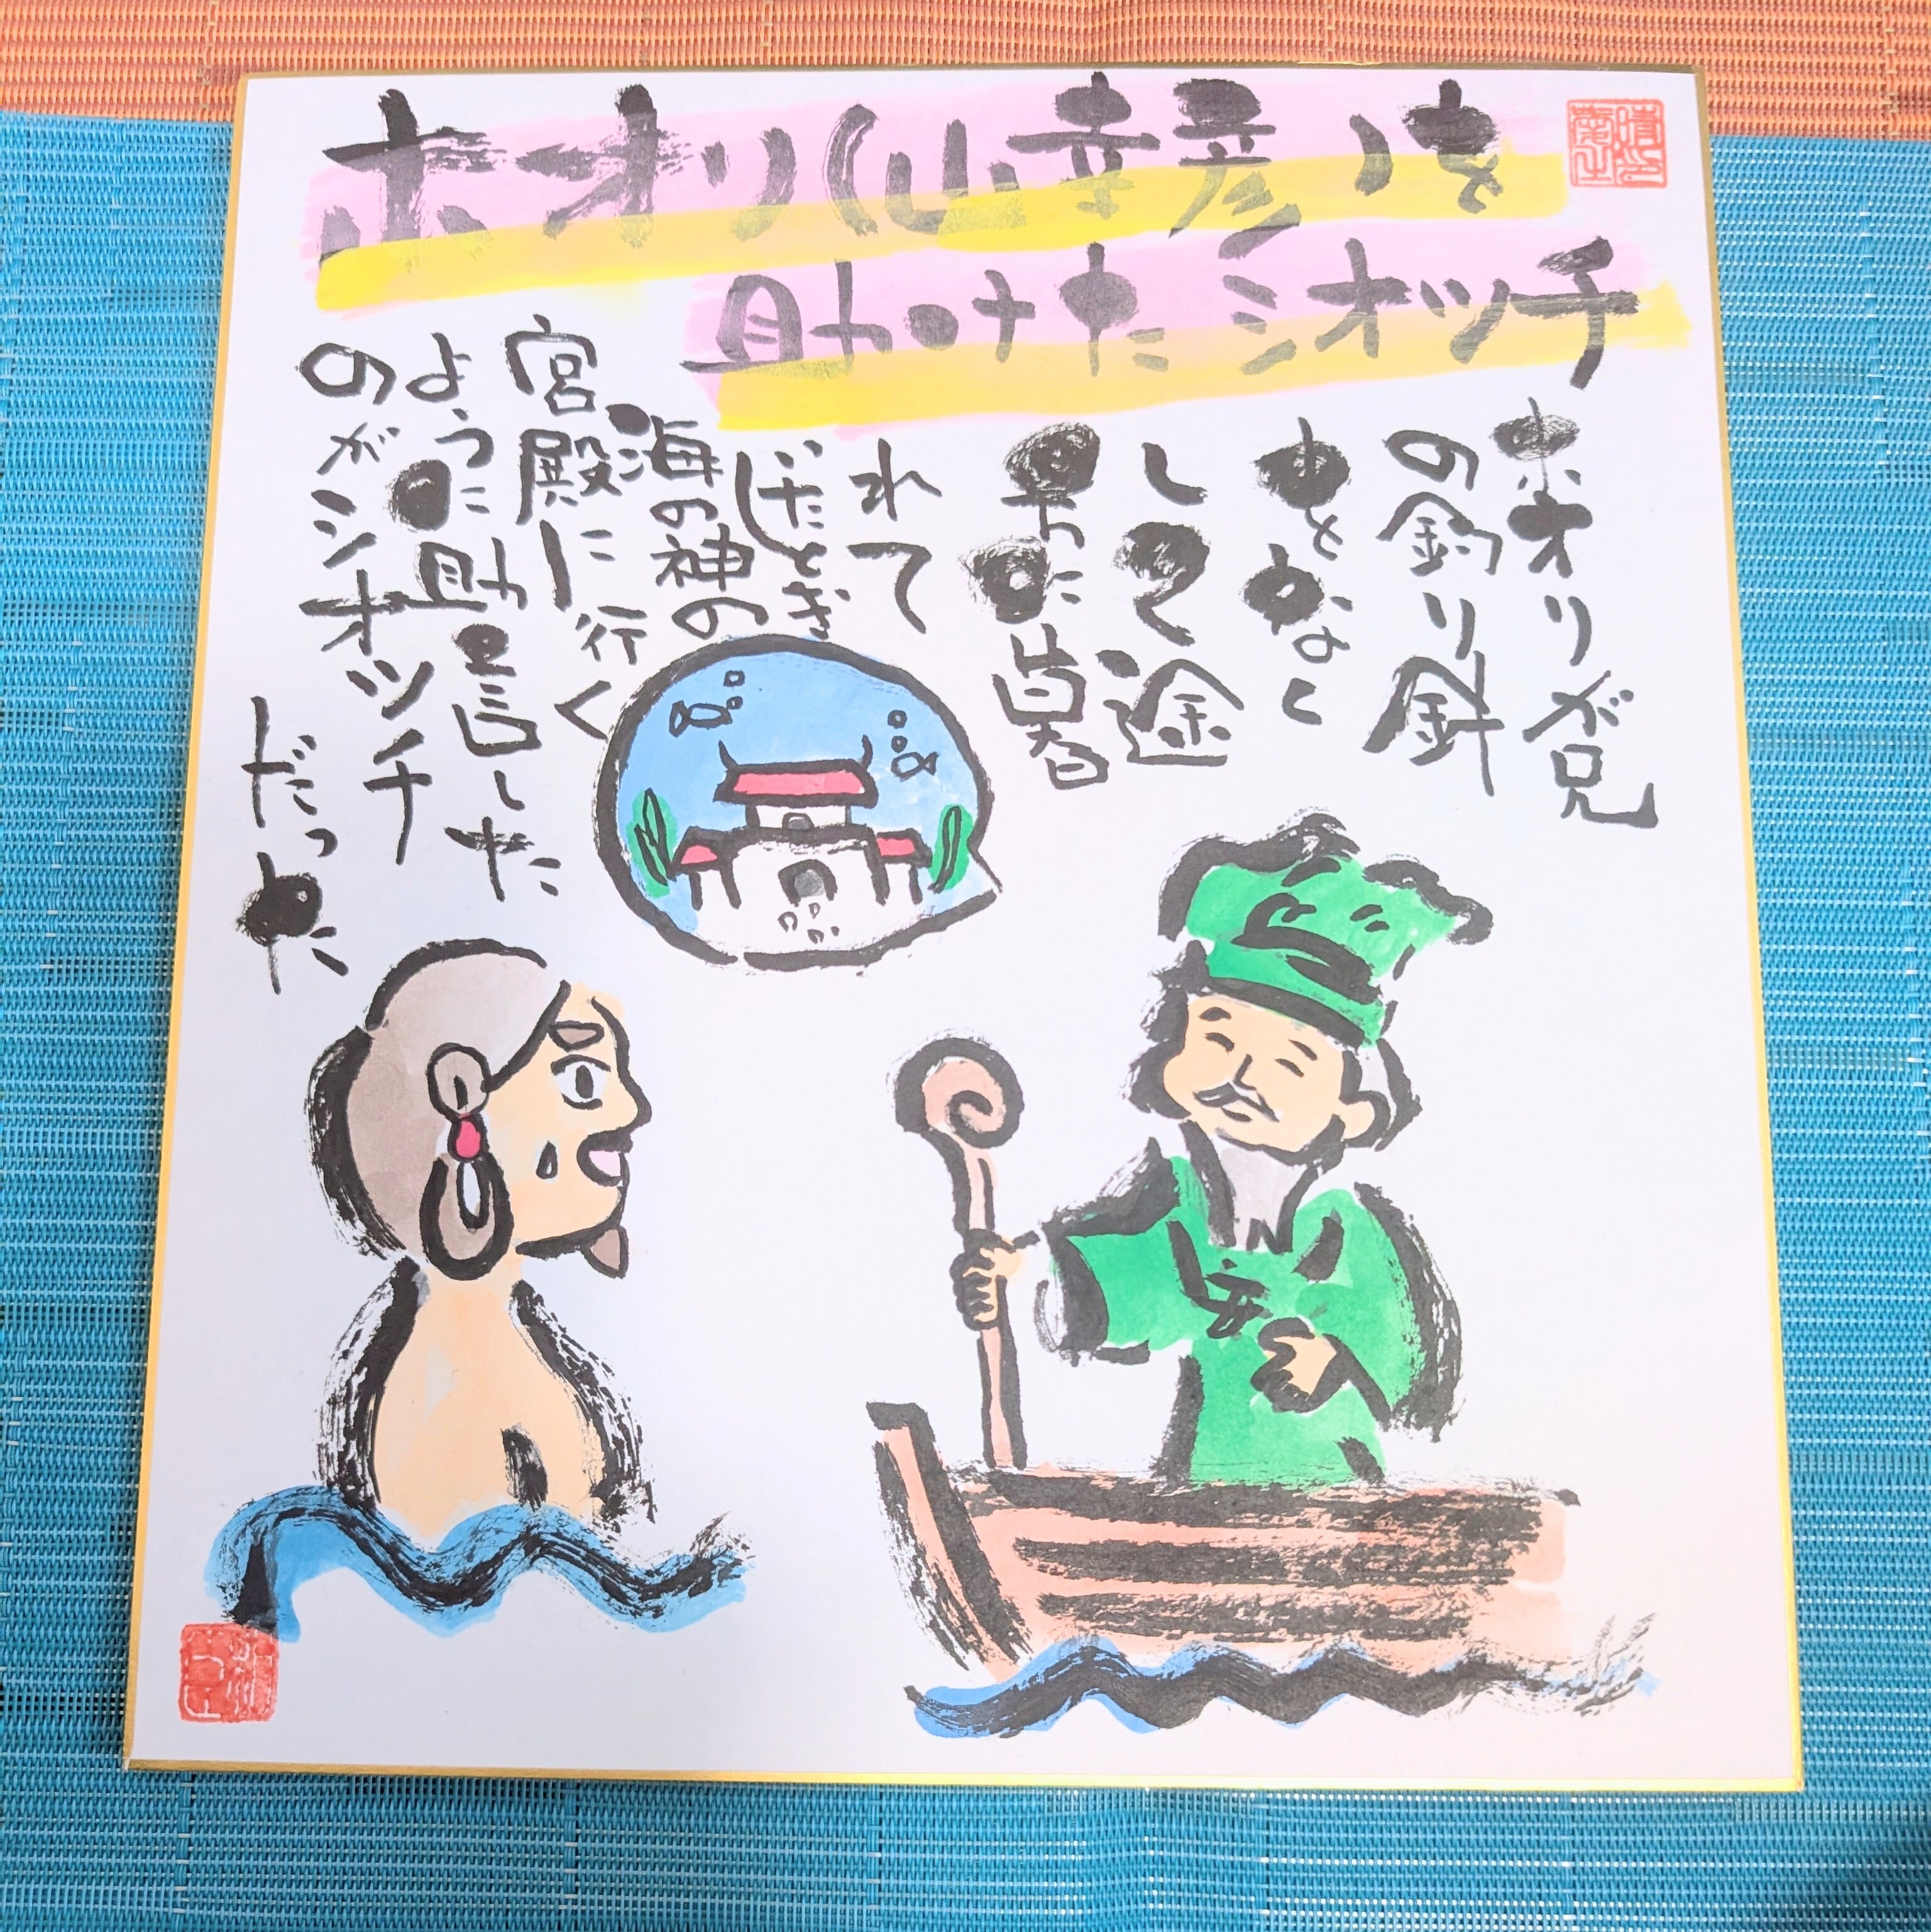 ホオリ(山幸彦)を
助けたシオツチ
ホオリが兄
の釣り針
をなく
して途
方に暮
れて
いたとき
海の神の
宮殿に行く
ように助言した
のがシオツチ
だった